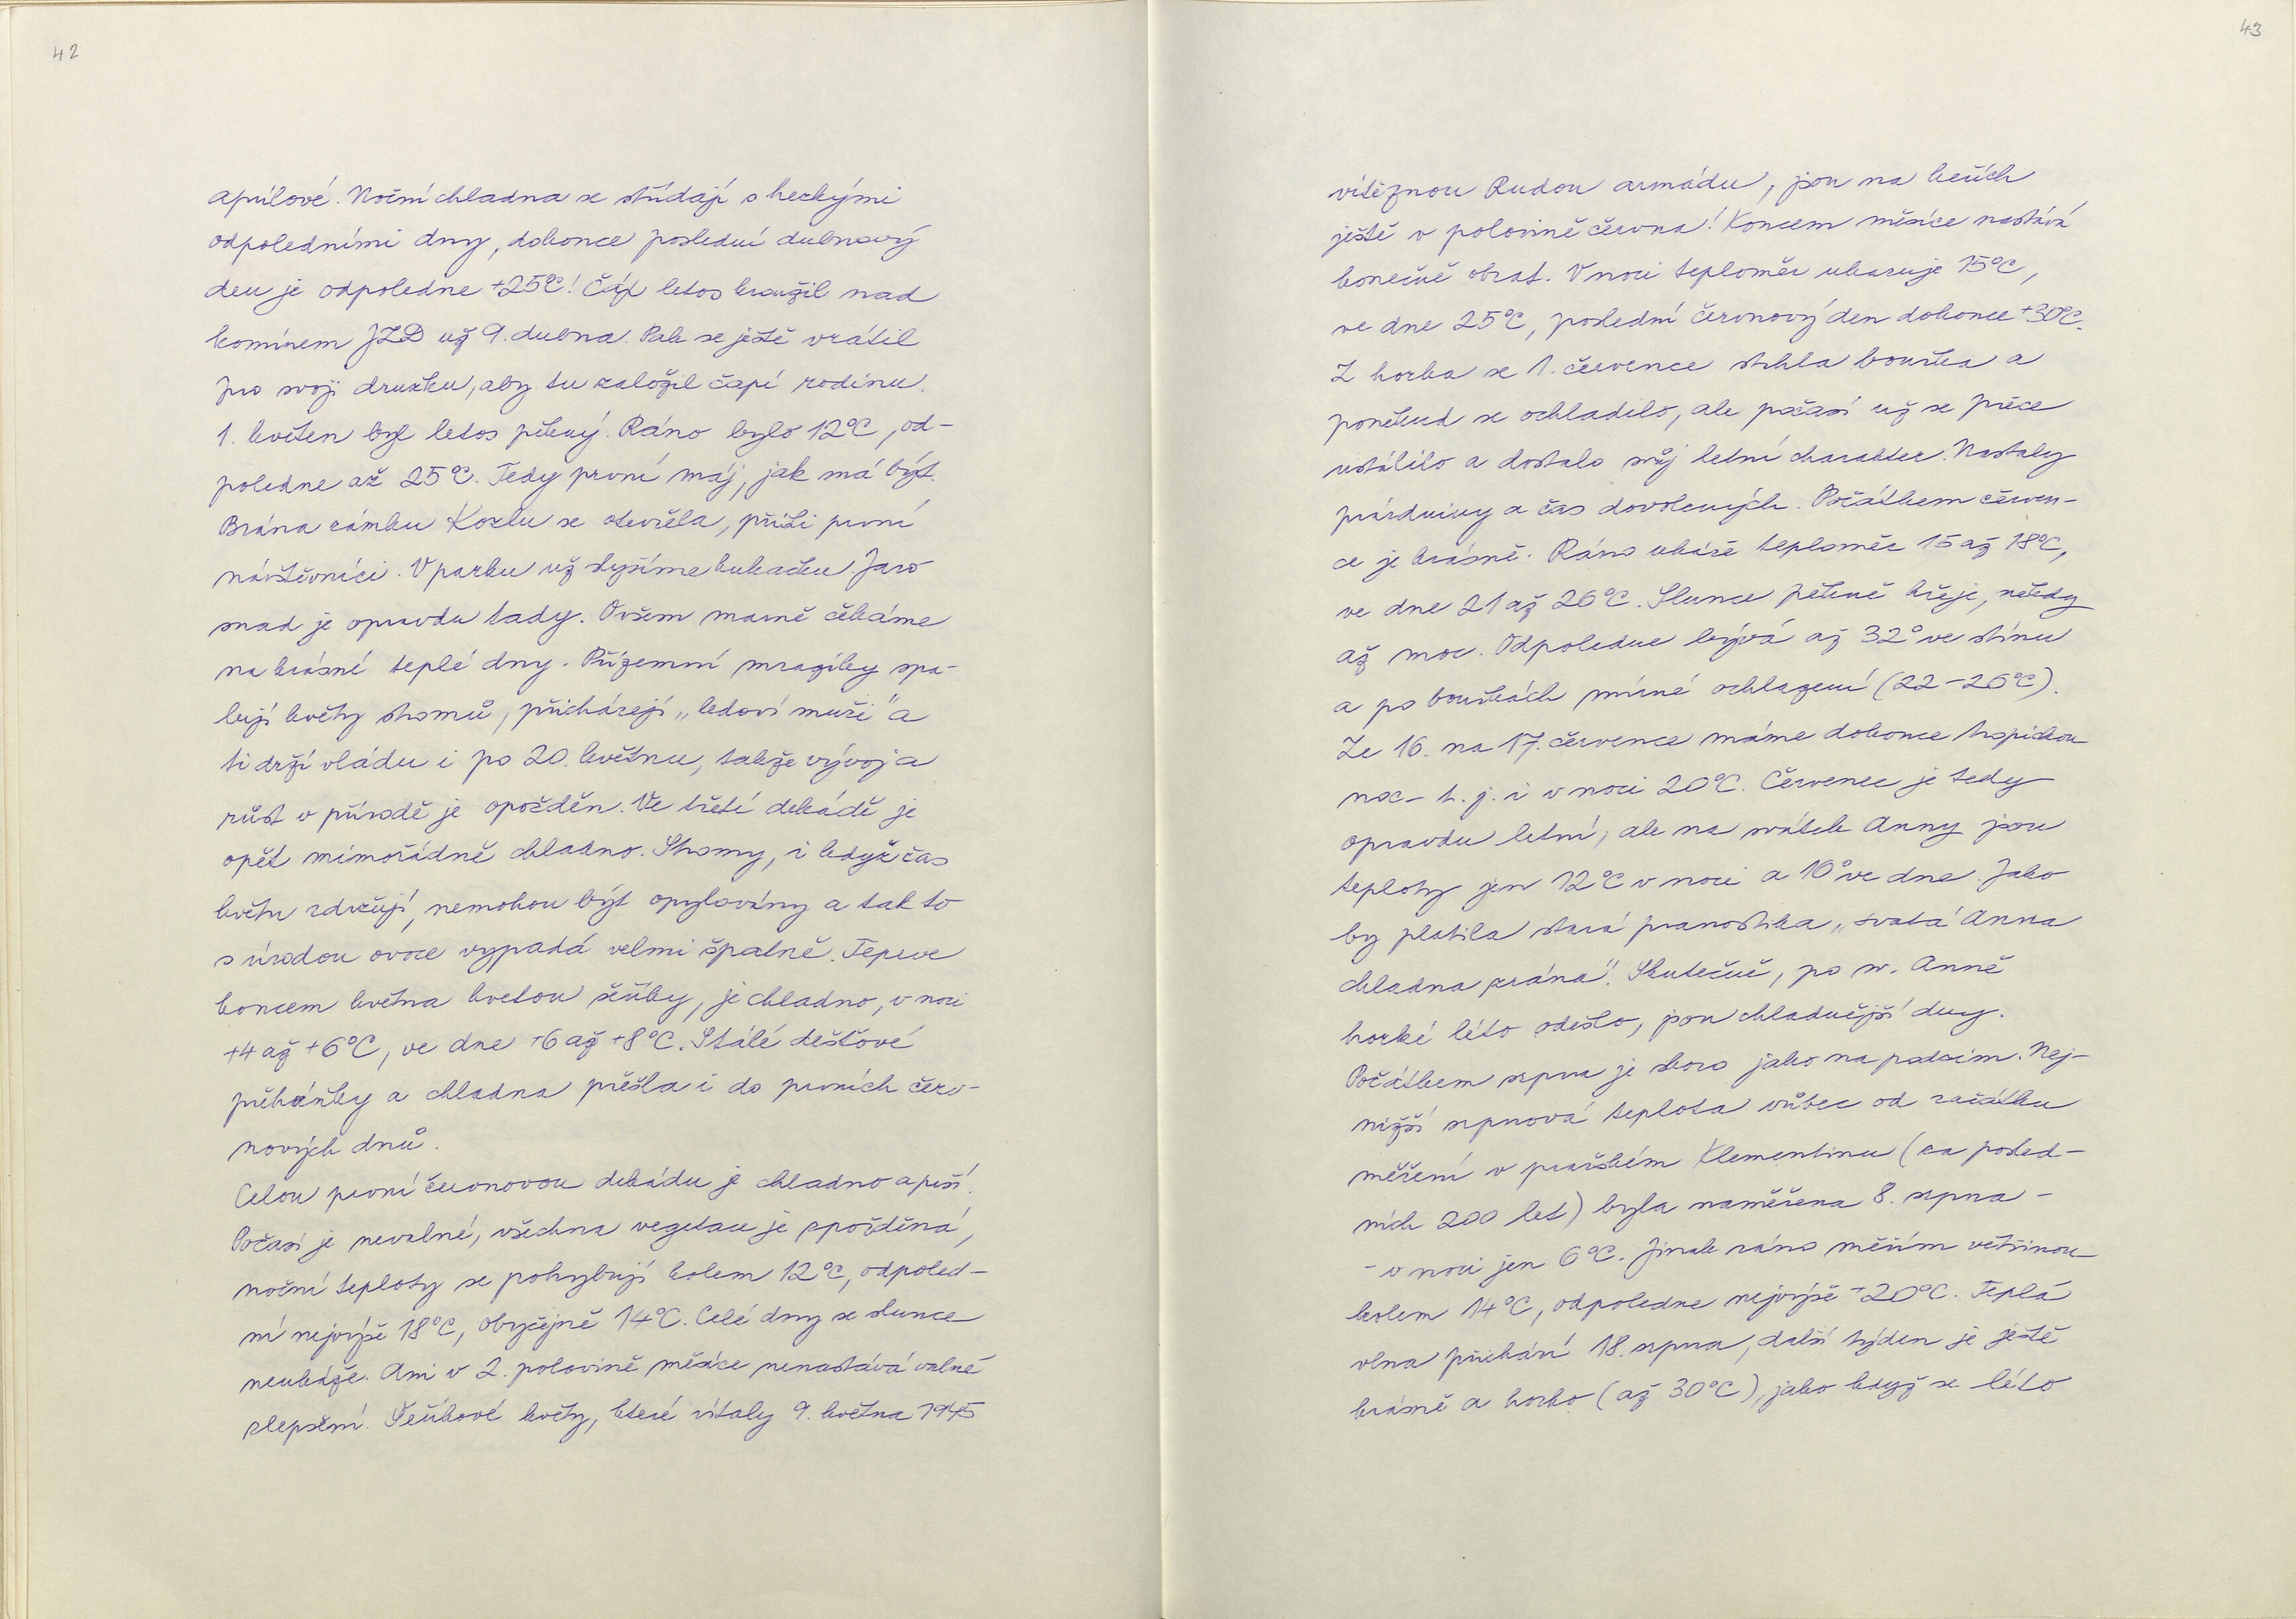 42
aprílové. Noční chladna se střídají s hezkými
odpoledními dny, dokonce poslední dubnový
den je odpoledne +25°C! Čáp letos kroužil nad
komínem JZD už 9. dubna. Pak se ještě vrátil
pro svoji družku, aby tu založil čapí rodinu.
1. květen byl letos pěkný. Ráno bylo 12°C, od-
poledne až 25°C. Tedy první máj, jak má být.
Brána zámku Kozlu se otevřela, přišli první
návštěvníci. V parku už slyšíme kukačku. Jaro
snad je opravdu tady. Ovšem marně čekáme
na krásné teplé dny. Přízemní mrazíky spa-
lují květy stromů, přicházejí „ledoví muži" a
ti drží vládu i po 20. květnu, takže vývoj a
růst v přírodě je opožděn. Ve třetí dekádě je
opět mimořádně chladno. Stromy, i když čas
květu zdržují, nemohou být opylovány a tak to
s úrodou ovoce vypadá velmi špatně. Teprve
koncem května kvetou šeříky, je chladno, v noci
+4 až +6°C, ve dne +6 až +8°C. Stálé dešťové
přeháňky a chladna přešla i do prvních červ-
nových dnů.
Celou první červnovou dekádu je chladno a prší.
Počasí je nevalné, všechna vegetace je opožděná,
noční teploty se pohybují kolem 12°C, odpoled-
ní nejvýše 18°C, obyčejně 14°C. Celé dny se slunce
neukáže. Ani v 2. polovině měsíce nenastává valné
zlepšení. Šeříkové květy, které vítaly 9. května 1945
43
vítěznou Rudou armádu, jsou na keřích
ještě v polovině června! Koncem měsíce nastává
konečně obrat. V noci teploměr ukazuje 15°C,
ve dne 25°C, poslední červnový den dokonce +30°C.
Z horka se 1. července strhla bouřka a
poněkud se ochladilo, ale počasí už se přece
ustálilo a dostalo svůj letní charakter. Nastaly
prázdniny a čas dovolených. Počátkem červen-
ce je krásně. Ráno ukáže teploměr 15 až 18°C,
ve dne 21 až 26°C. Slunce pěkně hřeje, někdy
až moc. Odpoledne bývá až 32° ve stínu
a po bouřkách mírné ochlazení (22-26°C).
Ze 16. na 17. července máme dokonce tropickou
noc - t. j. i v noci 20°C. Červenec je tedy
opravdu letní, ale na svátek Anny jsou
teploty jen 12°C v noci a 16° ve dne. Jako
by platila stará pranostika „svatá Anna
chladna zrána". Skutečně, po sv. Anně
horké léto odešlo, jsou chladnější dny.
Počátkem srpna je skoro jako na podzim. Nej-
nižší srpnová teplota vůbec od začátku
měření v pražském Klementinu (za posled-
ních 200 let) byla naměřena 8. srpna -
- v noci jen 6°C. Jinak ráno měřím většinou
kolem 14°C, odpoledne nejvýše +20°C. Teplá
vlna přichází 18. srpna, další týden je ještě
krásně a horko (až 30°C), jako když se léto